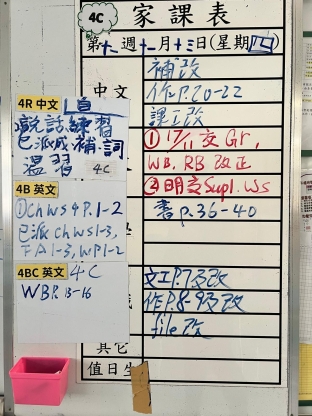 4C
家課表
第十一週十一月十三日(星期四)
中文
補改
作P.20-22
課工改
① 17/11 交 Gr,
WB, RB 改正
② 明交 Supl. WS
書 p.36-40
文工P.7-8改
作P.8-9改
file 改
其它
值日生
4R 中文
說話練習
已派成補.詞
溫習 4C
4B 英文
① Ch WS 4 P.1-2
已派 Ch WS 1-3,
FA 1-3, WP 1-2
4BC 英文
4C
WB P. 13-16